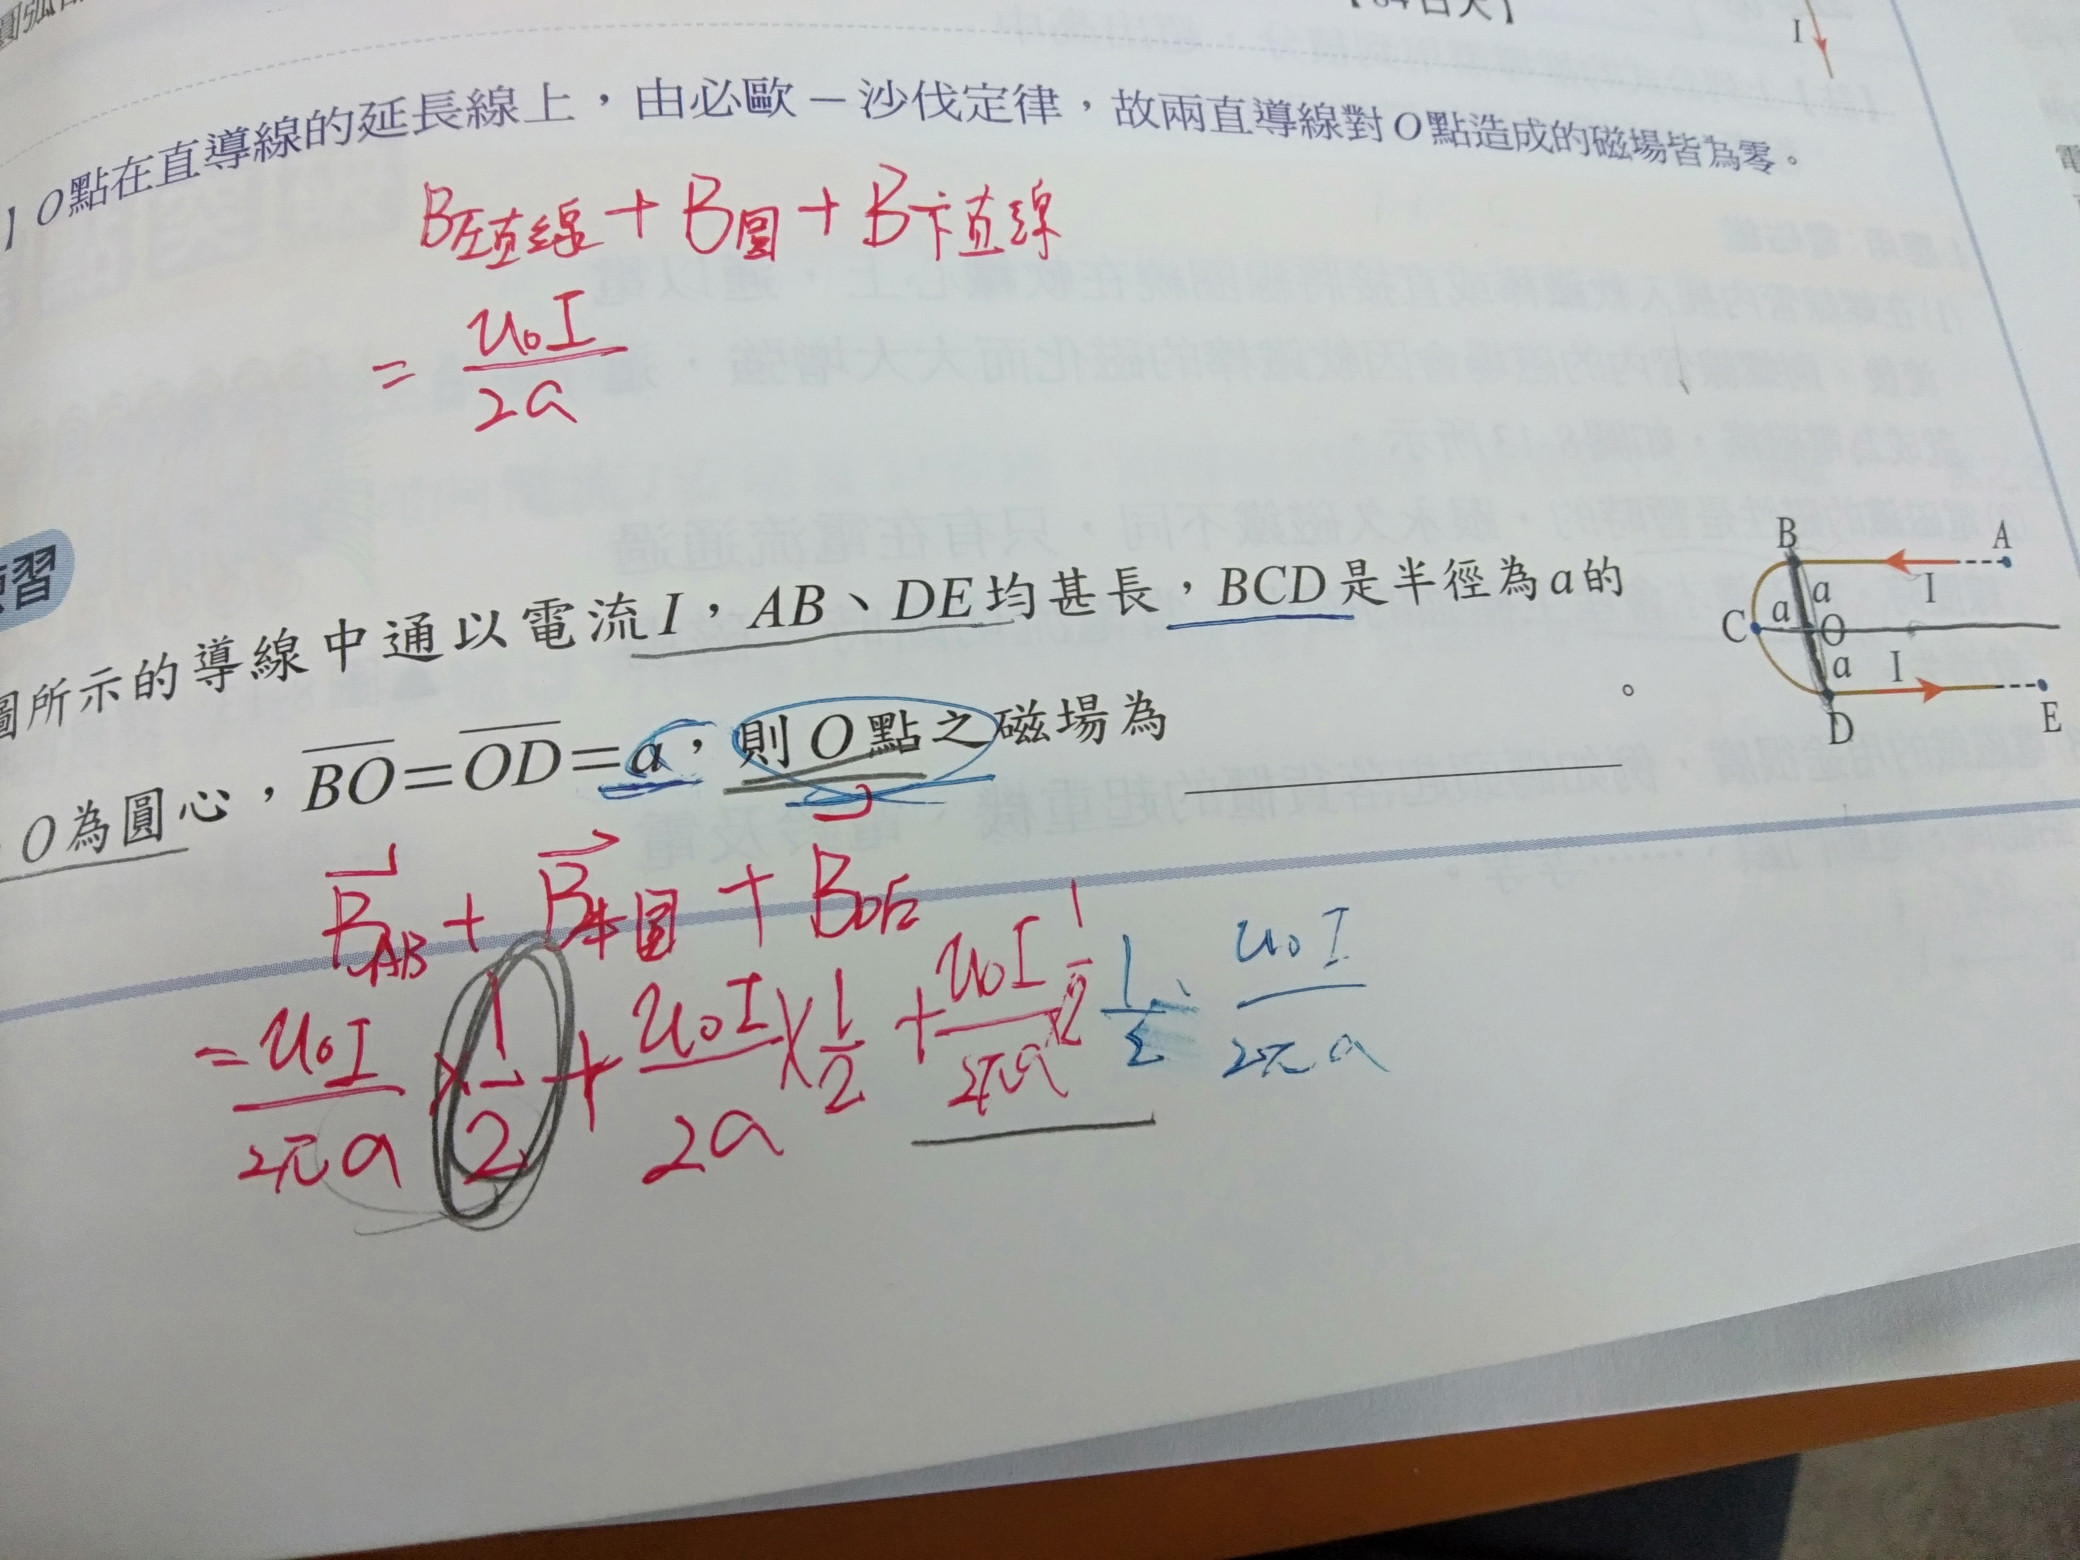 I
O點在直導線的延長線上，由必歐－沙伐定律，故兩直導線對O點造成的磁場皆為零。
B左直線 + B圓 + B下直線
= u₀I / 2a
習
圖所示的導線中通以電流I，AB、DE均甚長，BCD是半徑為a的
O為圓心，BO=OD=a，則O點之磁場為 。
B A
a I
C a O
a I
D E
B AB + B 半圓 + B DE
= u₀I / 2πa × 1/2 + u₀I / 2a × 1/2 + u₀I / 2πa 1/2 1/2 u₀I / 2πa